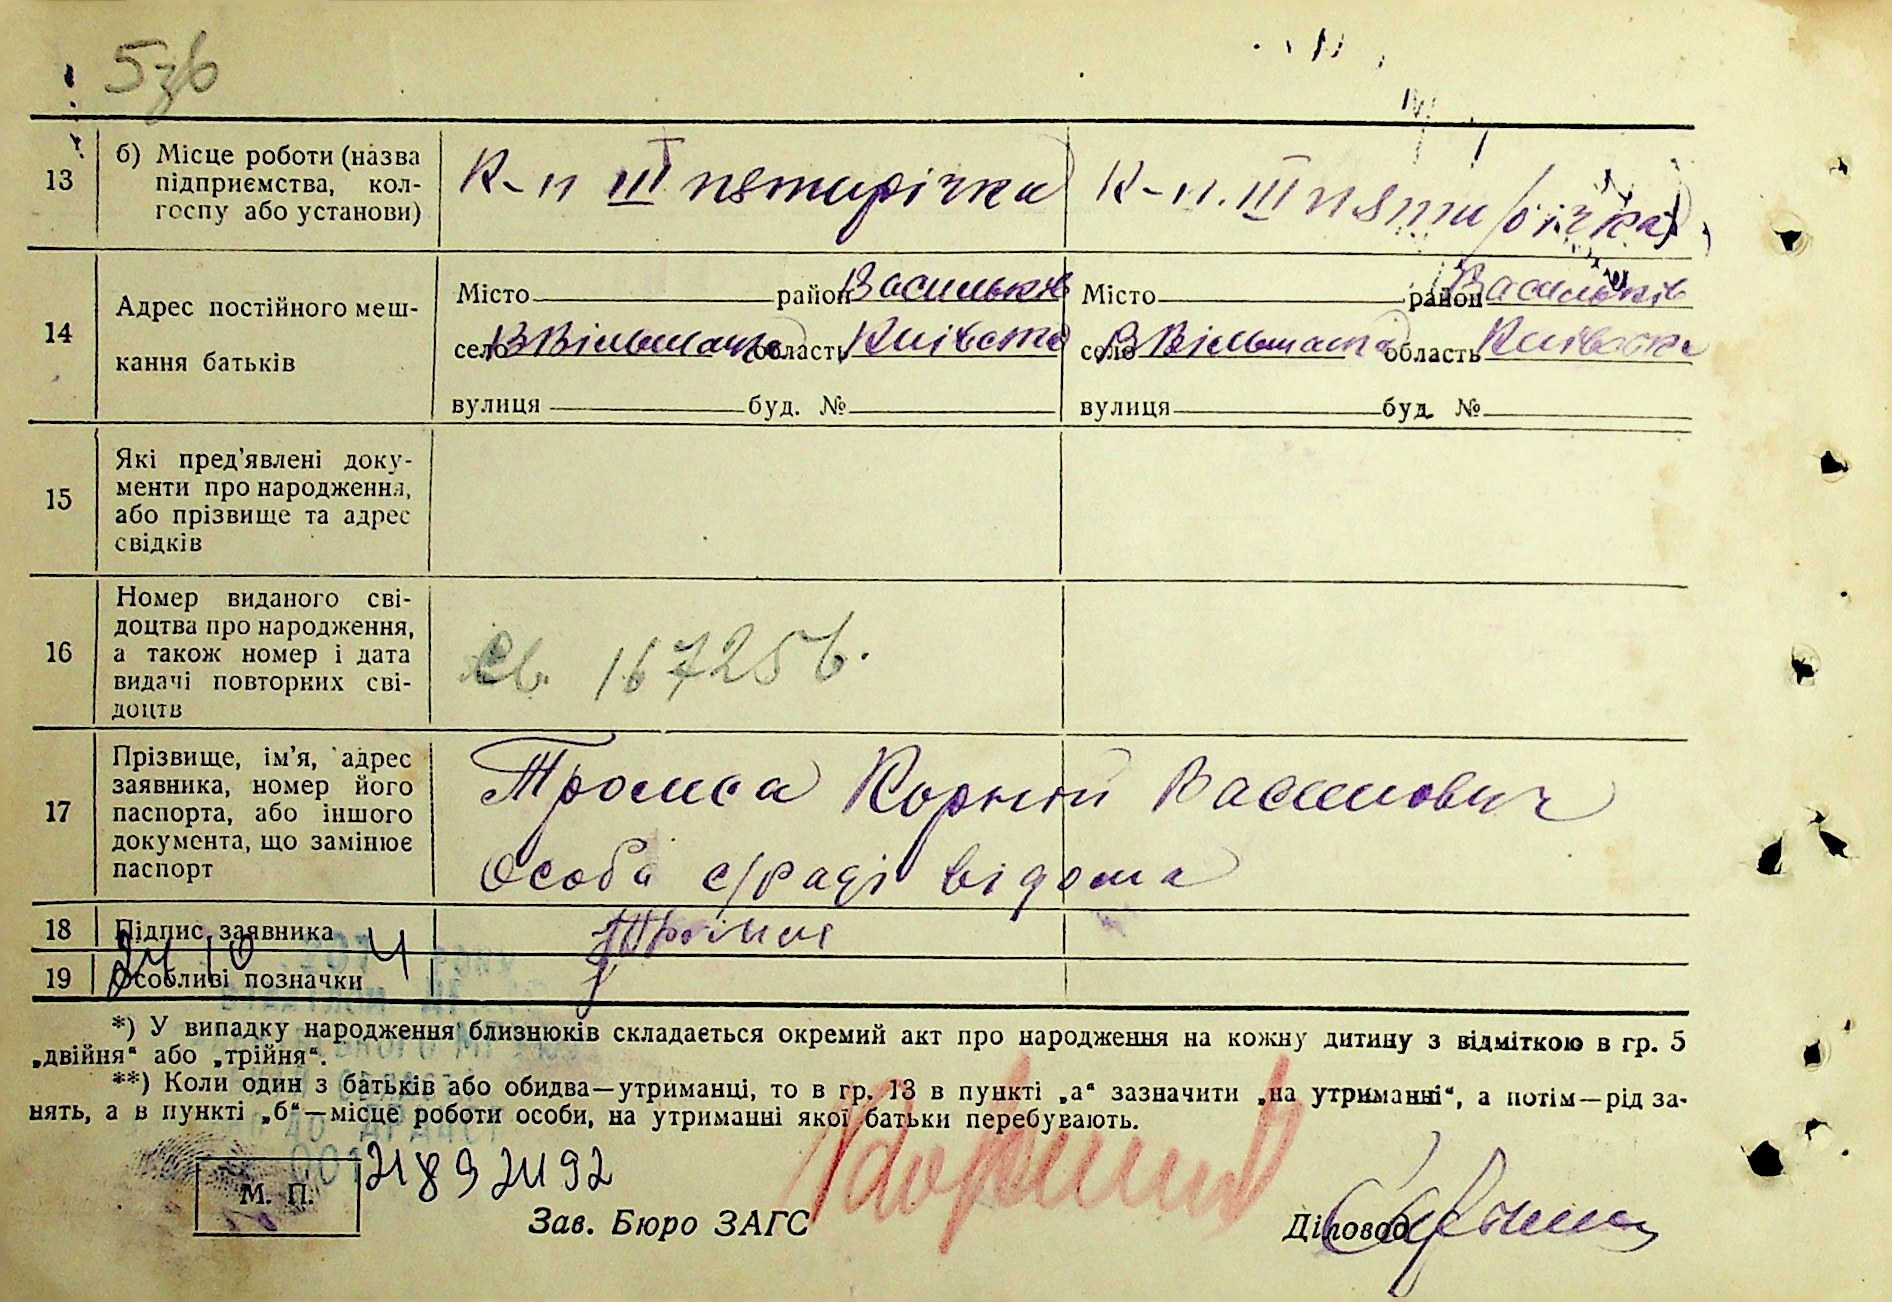 13 б) Місце роботи (назва
підприємства, кол-
госпу або установи)
К-п III пятирічка К-п. III пятирічка
14 Адрес постійного меш-
кання батьків
Місто район Васильків Місто район Васильків
село В Вільшанка область Київська село В Вільшанка область Київська
вулиця буд. № вулиця буд. №
15 Які пред'явлені доку-
менти про народження,
або прізвище та адрес
свідків
16 Номер виданого сві-
доцтва про народження,
а також номер і дата
видачі повторних сві-
доцтв
Св. 167256.
17 Прізвище, ім'я, адрес
заявника, номер його
паспорта, або іншого
документа, що замінює
паспорт
Корній Васильович
Особа с/раді відома
18 Підпис заявника
19 Особливі позначки
*) У випадку народження близнюків складається окремий акт про народження на кожну дитину з відміткою в гр. 5
„двійня“ або „трійня“.
**) Коли один з батьків або обидва—утриманці, то в гр. 13 в пункті „а“ зазначити „на утриманні“, а потім—рід за-
нять, а в пункті „б“—місце роботи особи, на утриманні якої батьки перебувають.
М. П.
Зав. Бюро ЗАГС Діловод